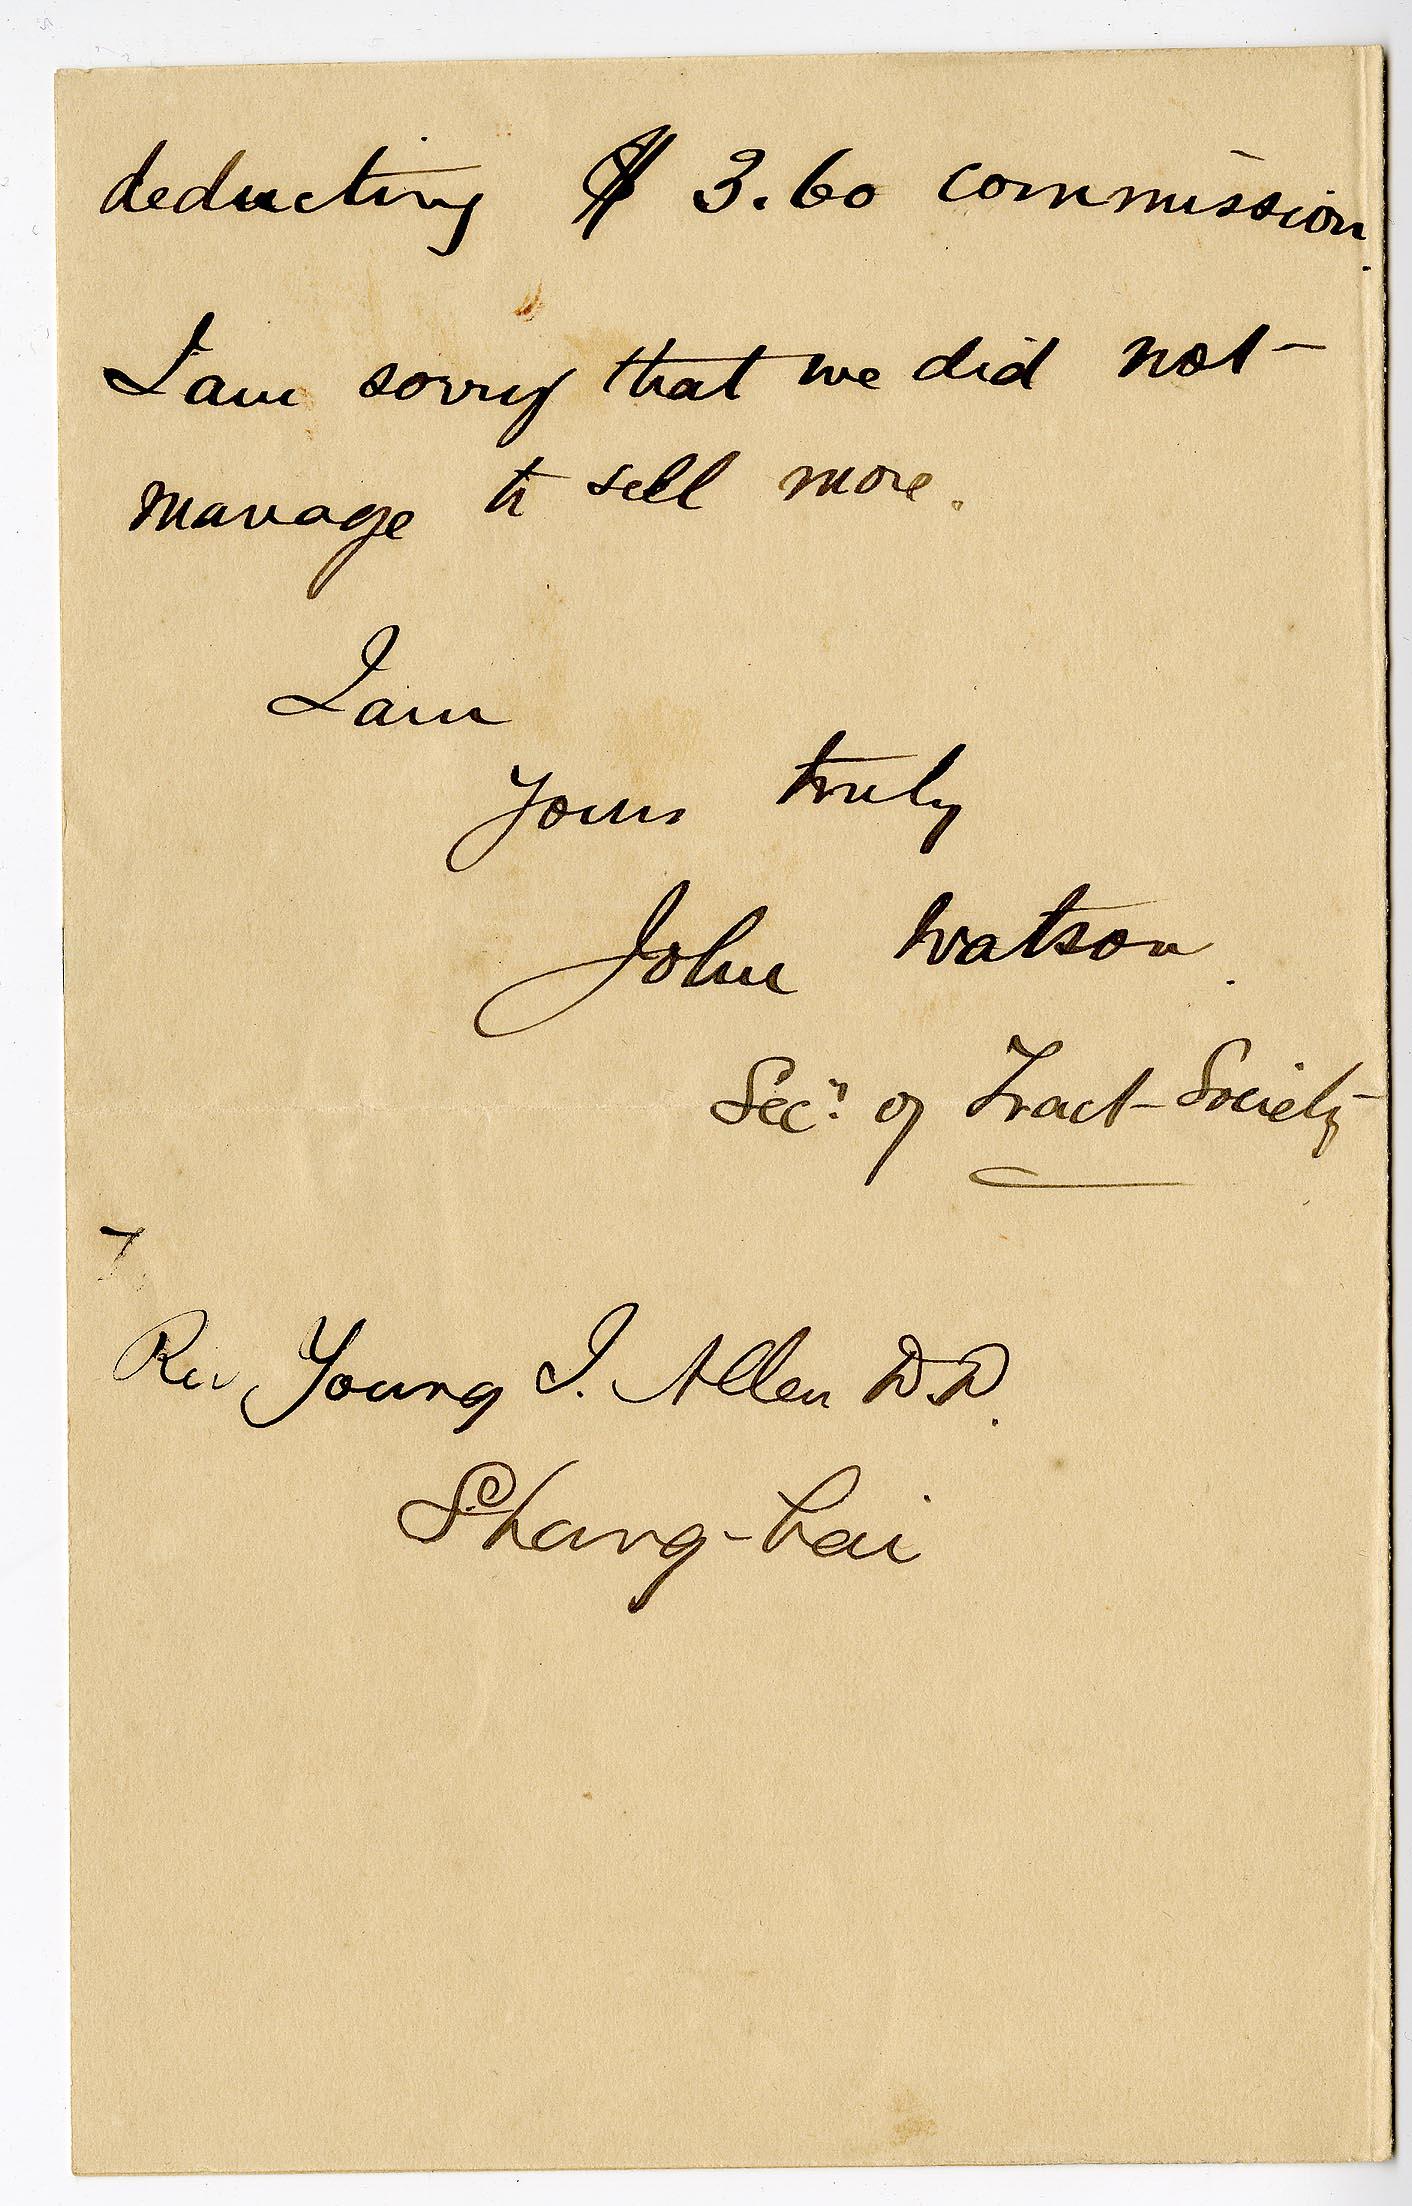 deducting $ 3.60 commission.
I am sorry that we did not
manage to sell more.
I am
Yours truly
John Watson.
Secy. of Tract Society
To
Rev Young J. Allen D.D.
Shang-hai